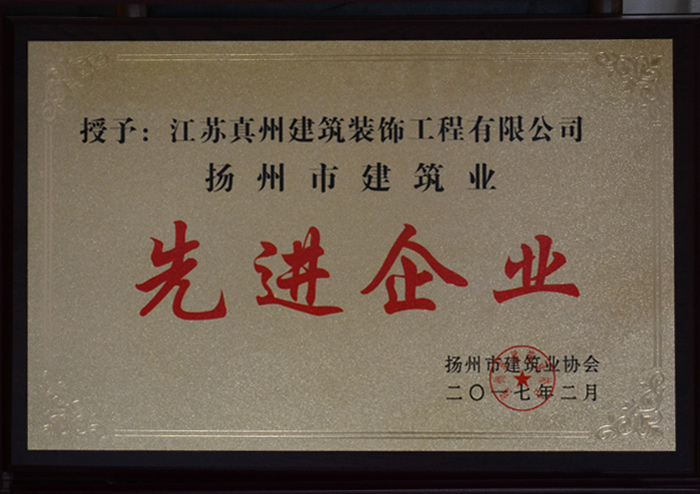 授予：江苏真州建筑装饰工程有限公司
扬州市建筑业
先进企业
扬州市建筑业协会
二〇一七年二月